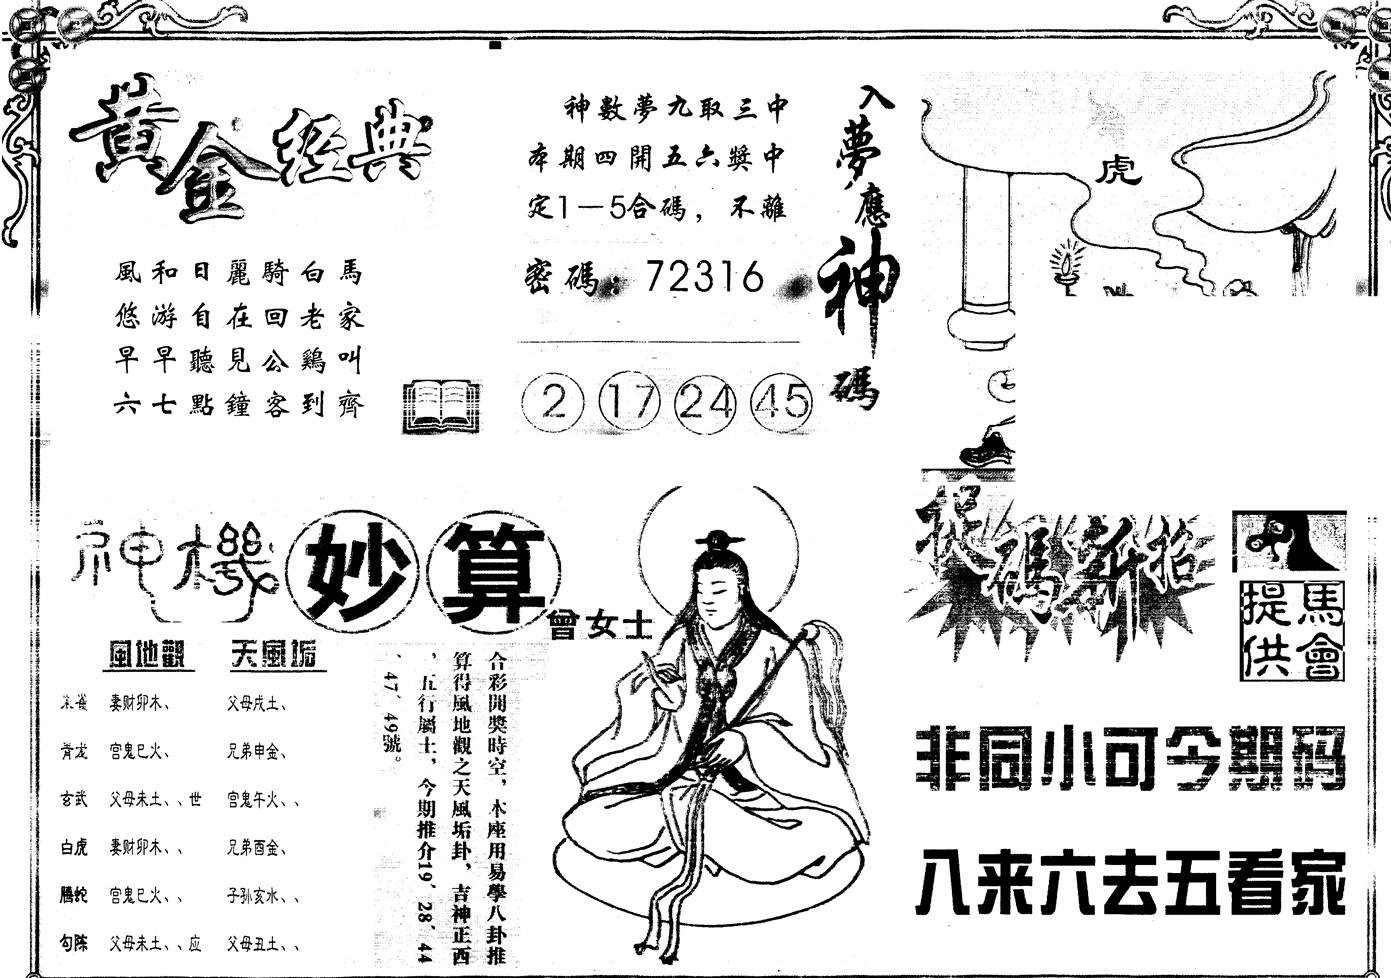 黃金經典
風和日麗騎白馬
悠游自在回老家
早早聽見公鷄叫
六七點鐘客到齊
神數夢九取三中
本期四開五六獎中
定1—5合碼，不離
密碼：72316
2 17 24 45
入夢應神碼
虎
神機妙算
曾女士
風地觀 天風垢
朱雀 妻财卯木、 父母戌土、
青龙 官鬼巳火、 兄弟申金、
玄武 父母未土、、世 官鬼午火、、
白虎 妻财卯木、、 兄弟酉金、
腾蛇 官鬼巳火、、 子孙亥水、、
勾陈 父母未土、、应 父母丑土、、
合彩開獎時空，本座用易學八卦推
算得風地觀之天風垢卦，吉神正西
，五行屬土，今期推介19、28、44
、47、49號。
捉碼新招
馬會
提供
非同小可今期码
八来六去五看家